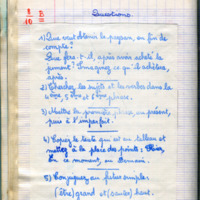 8
10
B
Questions
1) Que veut obtenir le paysan, en fin de
compte?
Que fera-t-il, après avoir acheté la
jument? Imaginez ce qu'il achètera,
après.
2) Cherchez les sujets et les verbes dans la
5ème phrase.
3) Mettre la première phrase, au présent,
puis à l'imparfait.
4) Copiez le texte qui est en italiques et
mettez à la place des points : Hier,
En ce moment, ou Demain.
5) Conjuguez au futur simple:
(être) grand et (sauter) haut.